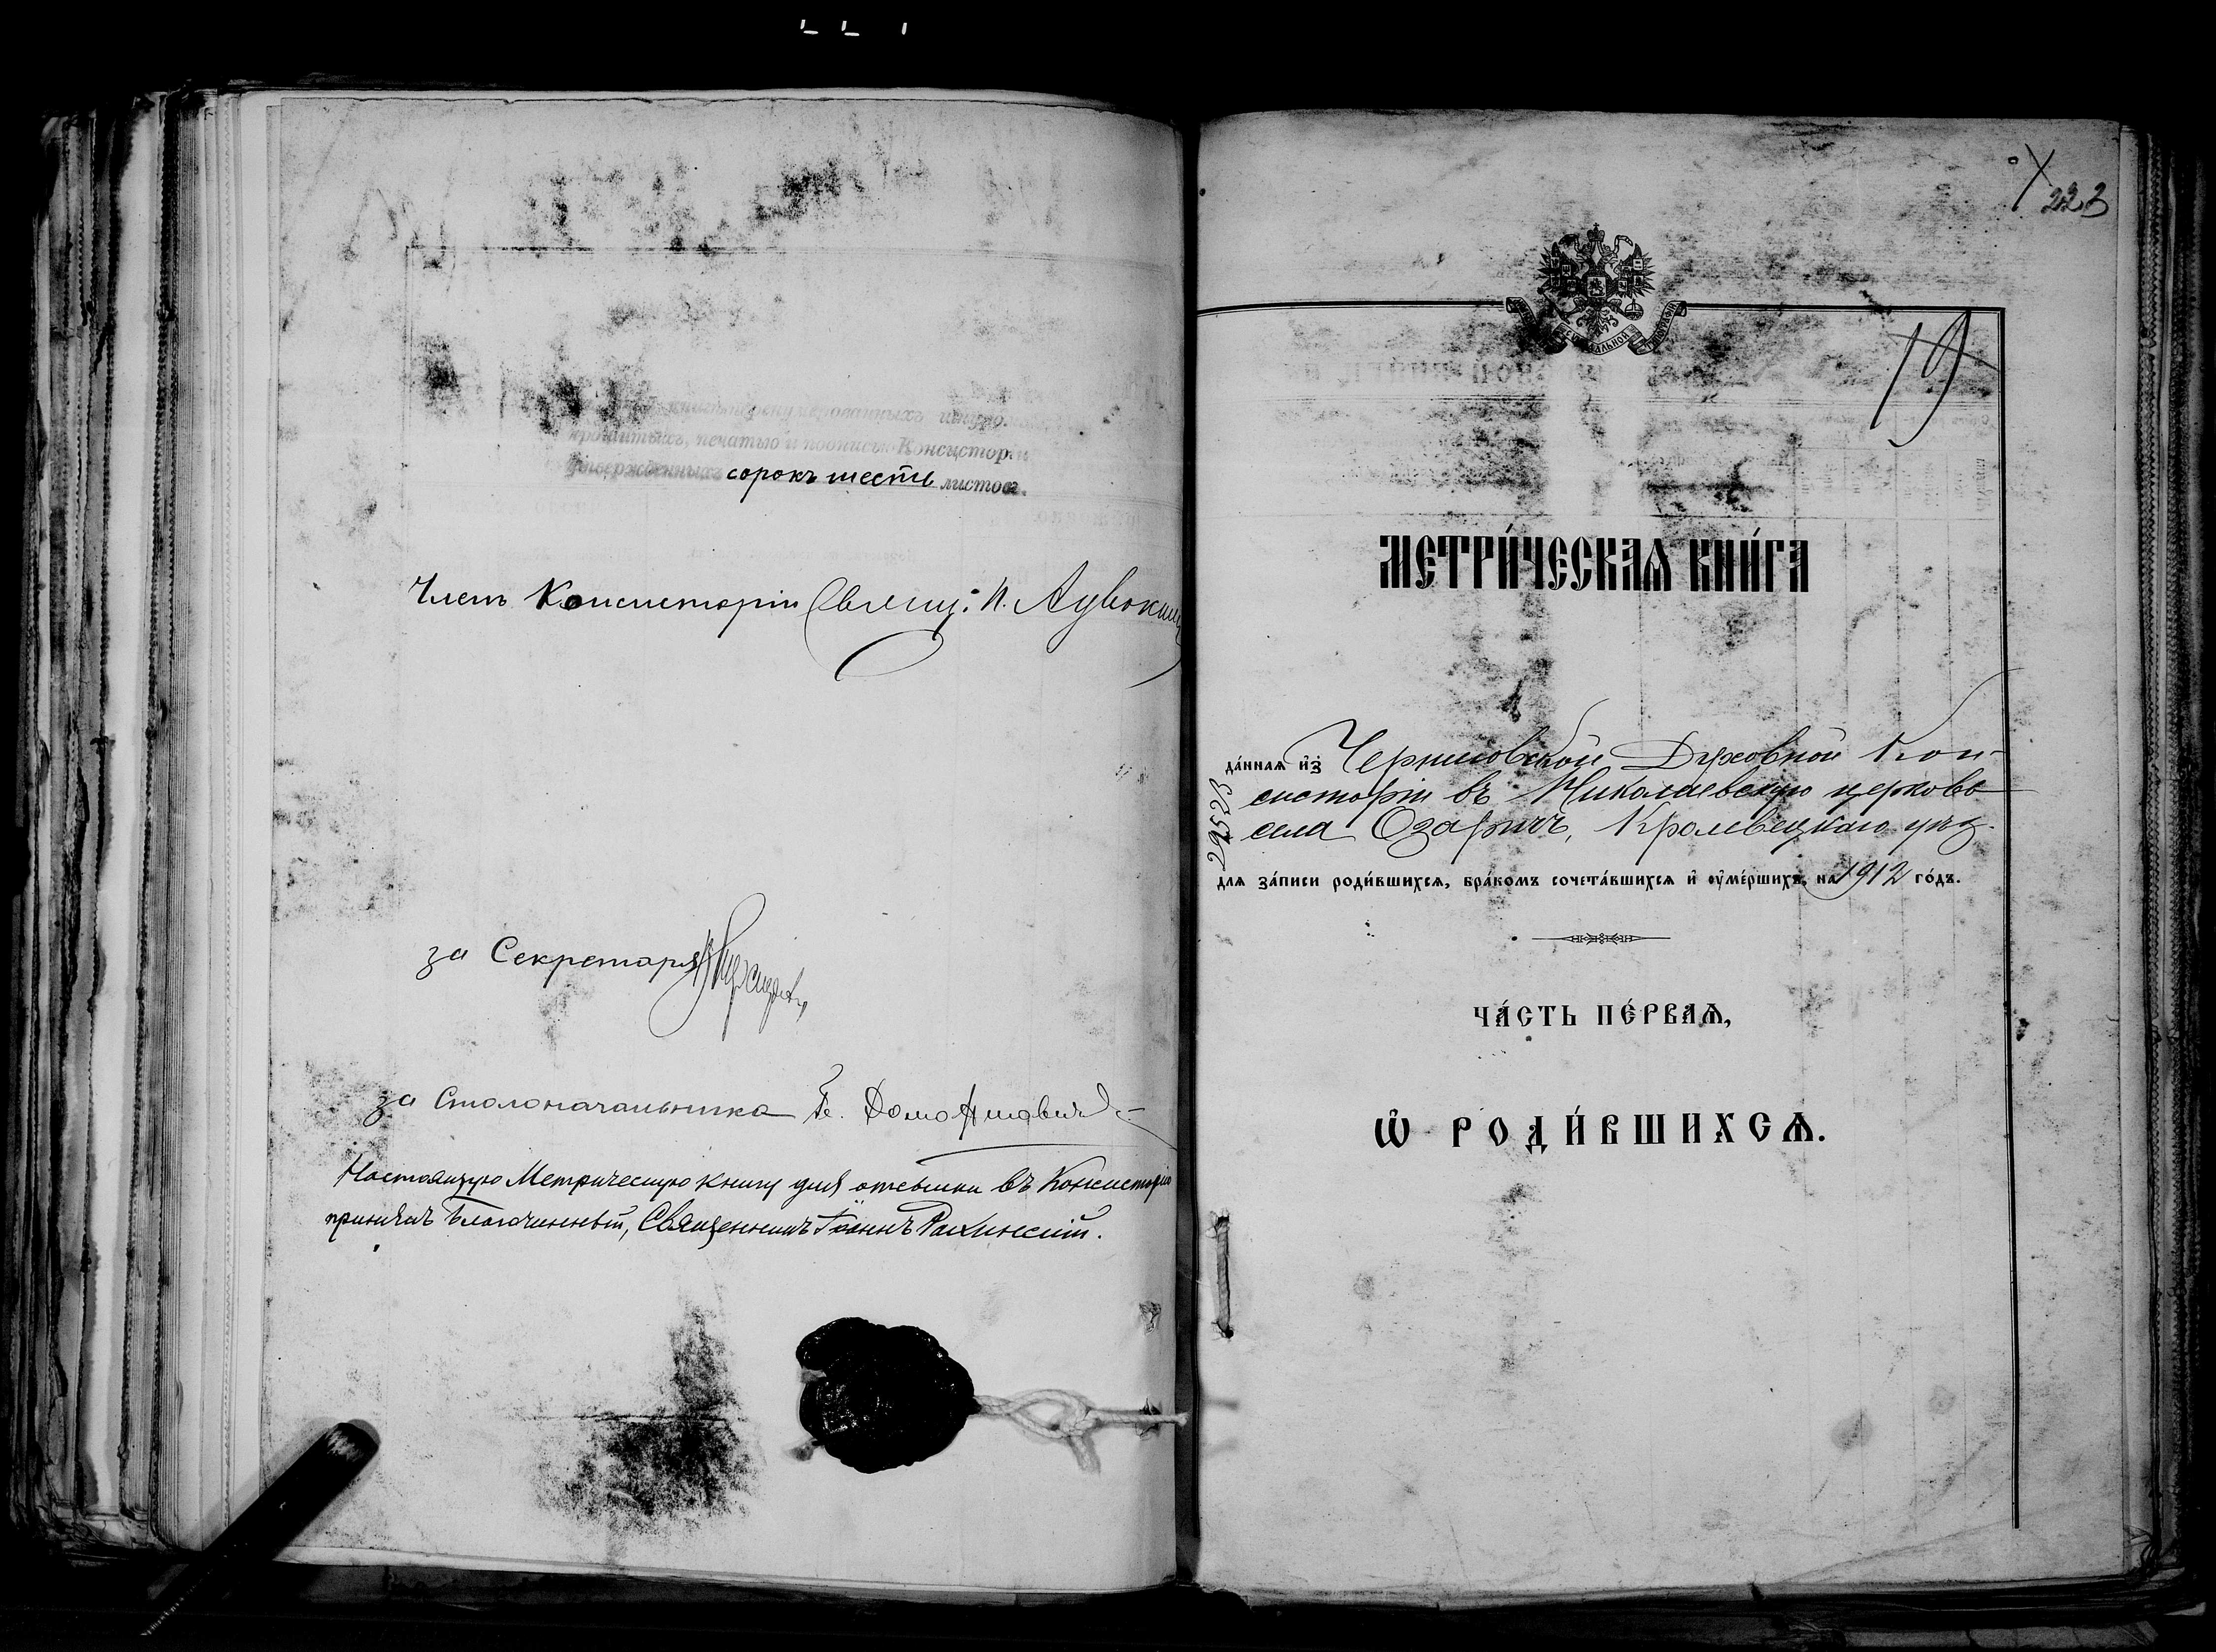 книгѣ
печатью и подписью Консисторіи
утвержденныхъ сорокъ шесть листовъ.
Членъ Консисторіи Свящ: П.
за Секретаря
за Столоначальника
Настоящую Метрическую книгу для отсылки въ Консисторію
принялъ Благочинный, Священникъ Іоаннъ
223
19
МЕТРИ́ЧЕСКАѦ КНИ́ГА
да́нная и҆з̾ Черниговской Духовной Кон-
систоріи въ Николаевскую церковь
села Озаричъ, Кролевецкаго уѣз.
29523
для за́писи роди́вшихсѧ, бра́комъ сочета́вшихсѧ и҆ ᲂу҆ме́ршихъ, на 1912 го́дъ.
ЧА́СТЬ ПЕ́РВАѦ,
Ѡ҆ РОДИ́ВШИХСѦ.